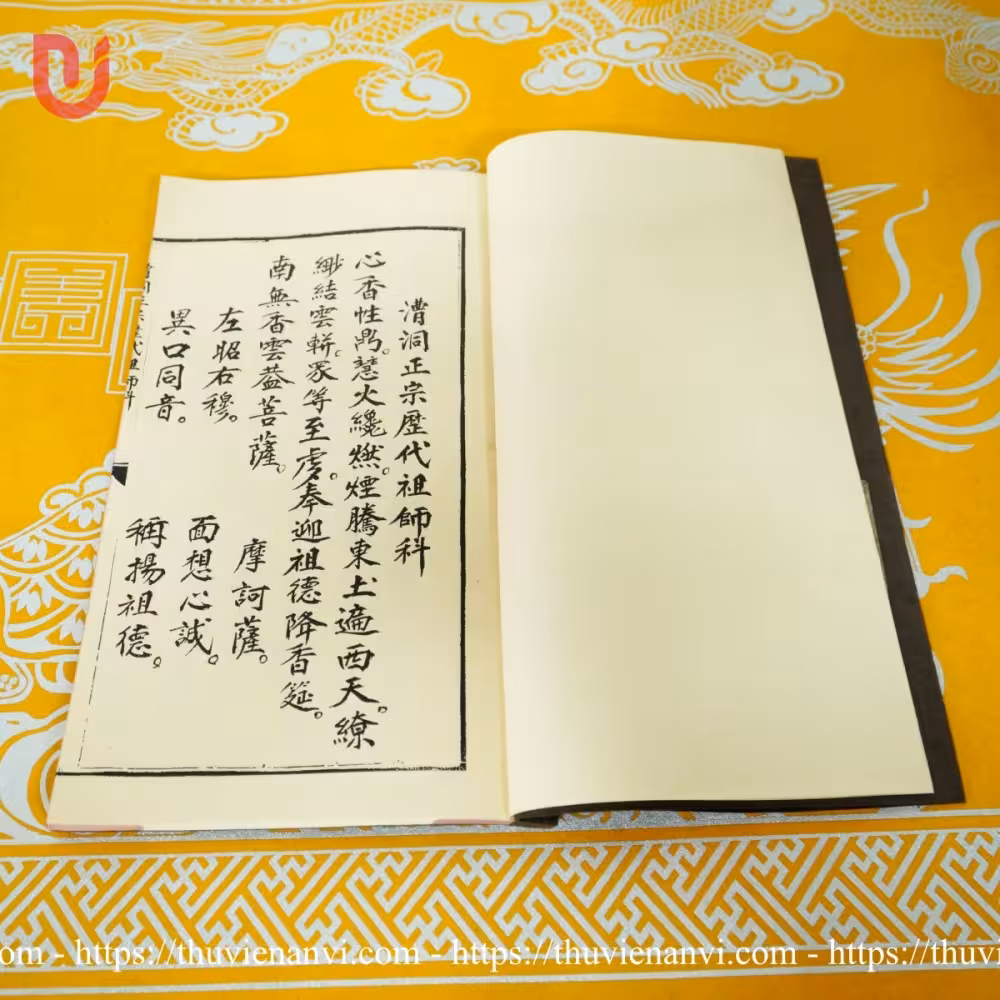 漕洞正宗歷代祖師科
心香性鼎。慧火纔燃。煙騰東土遍西天。繚
緲結雲軿。眾等至虔。奉迎祖德降香筵。
南無香雲葢菩薩。 摩訶薩。
左昭右穆。 面想心誠。
異口同音。 稱揚祖德。
代祖師科
.com - https://thuvienanvi.com - https://thuvienanvi.com - https://thuvi